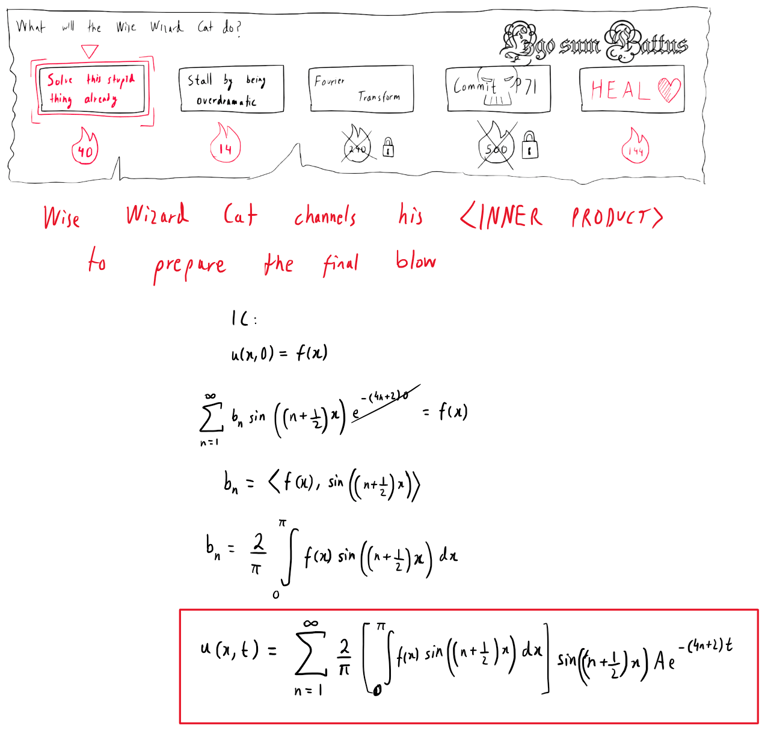 What will the Wise Wizard Cat do?
Ego sum Battus
Solve this stupid
thing already
Stall by being
overdramatic
Fourier
Transform
Commit P71
HEAL
40
14
240
500
144
Wise Wizard Cat channels his <INNER PRODUCT>
to prepare the final blow
IC:
u(x,0) = f(x)
∑_{n=1}^{∞} b_n sin((n+1/2)x) e^{-(4n+2)0} = f(x)
b_n = ⟨f(x), sin((n+1/2)x)⟩
b_n = 2/π ∫_0^π f(x) sin((n+1/2)x) dx
u(x,t) = ∑_{n=1}^{∞} 2/π [∫_0^π f(x) sin((n+1/2)x) dx] sin((n+1/2)x) A e^{-(4n+2)t}